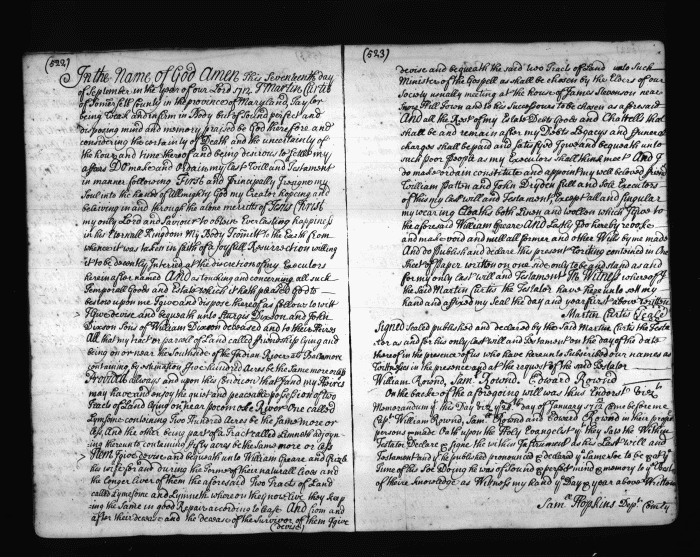 (522)
In the Name of God Amen This Seventeenth day
of September in the Year of our Lord 1712 I Martin Curtis
of Somersett County in the province of Maryland Taylor
being weak and infirm in Body but of Sound perfect and
disposing mind and memory praised be God therefore and
considering the certainty of Death and the uncertainty of
the hour and time thereof and being desirous to settle my
affairs DO make and Ordain my last Will and Testament
in manner following First and Principally I resigne my
Soul into the hands of Allmighty God my Creator hoping and
believing in and through the alone meritts of Jesus Christ
my only Lord and Saviour to obtain Everlasting happiness
in his Eternall Kingdom My Body I comitt to the Earth from
whence it was taken in faith of a Joyfull Resurrection willing
it to be decently Interred at the discretion of my Executors
hereinafter named AND as touching and concerning all such
Temporall Goods and Estate which it hath pleased God to
bestow upon me I give and dispose thereof as follows to witt
I give devise and bequeath unto Sturgis Dixson and John
Dixson Sons of William Dixson deceased and to their heires
All that my tract or parcell of Land called friendship lying and
being on or near the Southside of the Indian River at Baltemore
containing by Estimation five Hundred Acres be the same more or less
Provided allways and upon this Condicon that I and my Heires
may have and enjoy the quiet and peaceable possession of two
Tracts of Land lying on near pocomoke River One called
Lynesone containing Two Hundred Acres be the same more or
less And the other being part of a Tract called Limneth adjoyn
ing thereto containing fifty acres be the same more or less
Item I give devise and bequeath unto William Greare and
his wife for and during the Terme of their naturall lives and
the longer liver of them the aforesaid Two Tracts of Land
called Lynesone and Lymneth whereon they now live they keep
ing the Same in good Repair according to lease And from and
after their decease and the decease of the Survivor of them I give
(devise)
(523)
devise and bequeath the said two Tracts of Land unto such
Minister of the Gospell as shall be chosen by the Elders of our
Society usually meeting at the House of James Stevenson near
Snow Hill Town and to his Successours to be chosen as aforesaid
AND all the Rest of my Estate Debts Goods and Chattells that
shall be and remain after my Debts Legacys and funerall
charges shall be paid and satisfyed I give and bequeath unto
such poor People as my Executors shall think meet And I
do make ordain constitute and appoint my well beloved friend
William Patton and John Dryden full and sole Executors
of this my last will and Testament, Except all and singular
my wearing Cloaths both Linen and wollen which I give to
the aforesaid William Greare AND Lastly I do hereby revoke
and make void and null all former and other Wills by me made
And do Publish and declare this present writing contained in One
Sheet of Paper written on one side only to be and stand as and
for my only last will and Testament In Witness whereof I
the Said Martin Curtis the Testator have hereunto sett my
hand and affixed my Seal the day and year first above written
Martin Curtis Seale
Signed Sealed published and declared by the Said Martin Curtis the Testa
tor as and for his only last will and Testament on the day of the date
thereof in the presence of us who have hereunto subscribed our names as
Wittnesses in the presence and at the request of the said Testator
William Rownd, Sam. Rownd, Edward Rownd
On the backe of the aforegoing will was thus Endorst Vizt.
Memorandum yt this Day day of January 1712 Came before me
Capt. William Rownd Sam. Rownd and Edward Rownd in their proper
persons made Oath upon the Holy Evangelist yt they saw the Within
Testator Declare & signe the within Instrument as his Last will and
Testament and if he published pronounced & declared ye same so to be & att ye
Time of his so Doing he was of Sound & perfect mind & memory to ye best
of theire knowledge as Witness my hand ye Day & year above Written
Samll. Hopkins Depty. Comry